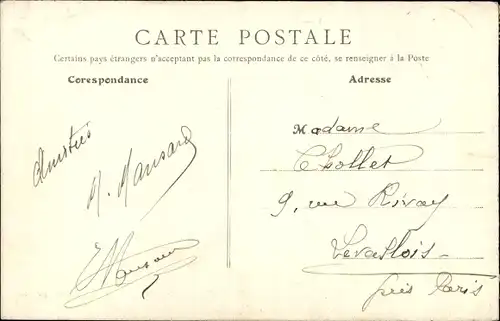 CARTE POSTALE
Certains pays étrangers n'acceptant pas la correspondance de ce côté, se renseigner à la Poste
Corespondance
Adresse
Amitiés
M. Mansard
Madame
Chollet
9, rue Rivay
Levallois-
près Paris